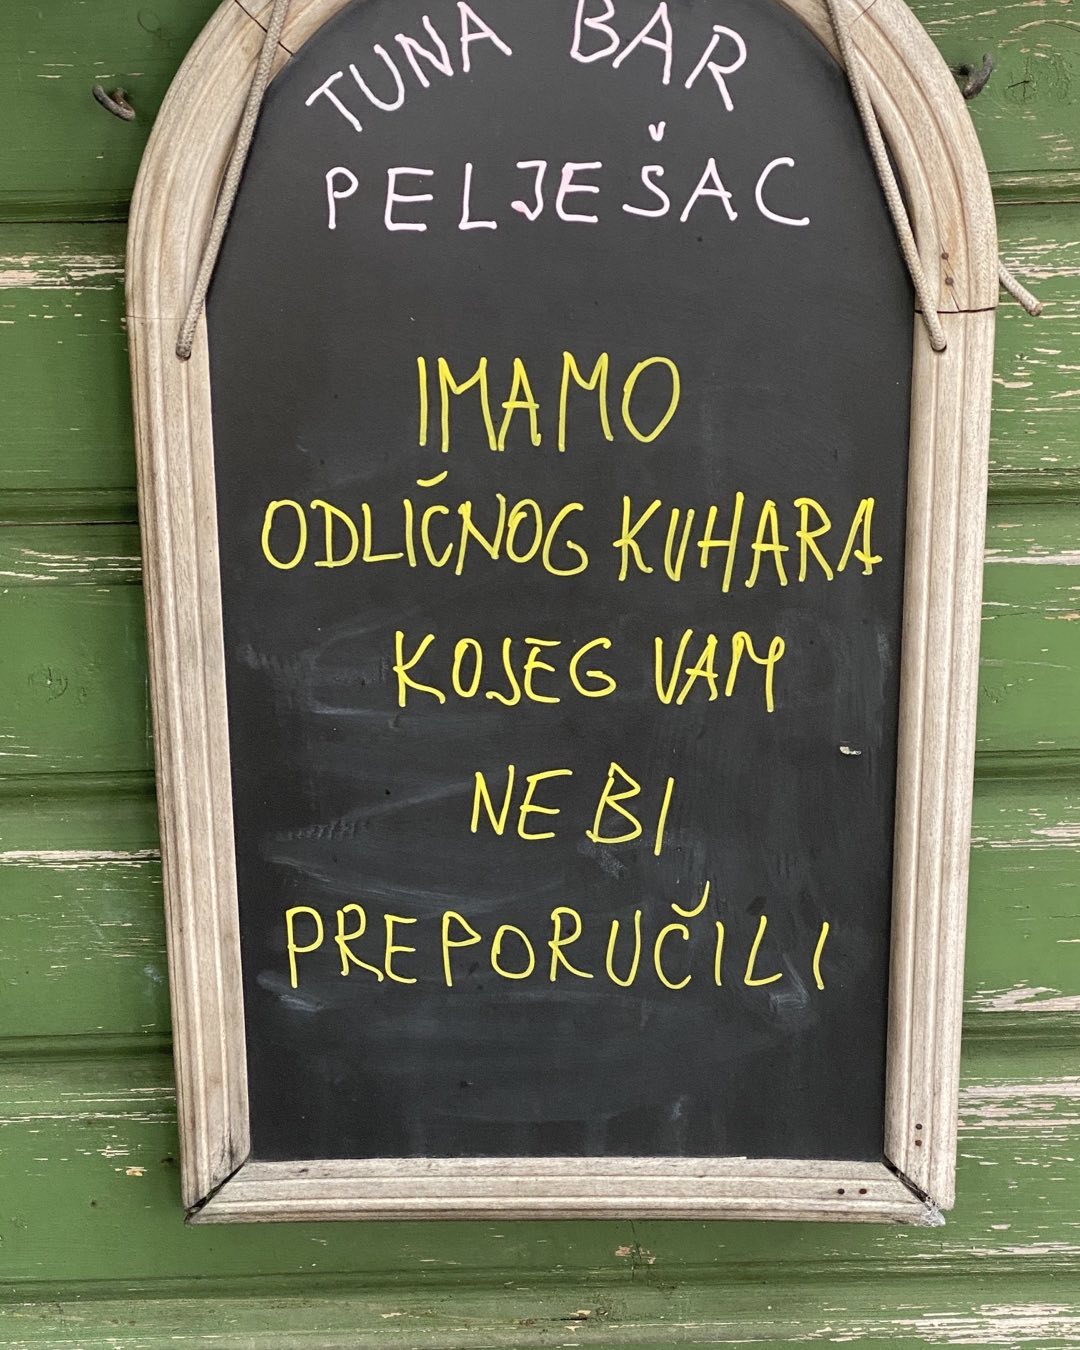 TUNA BAR
PELJEŠAC
IMAMO
ODLIČNOG KUHARA
KOJEG VAM
NE BI
PREPORUČILI